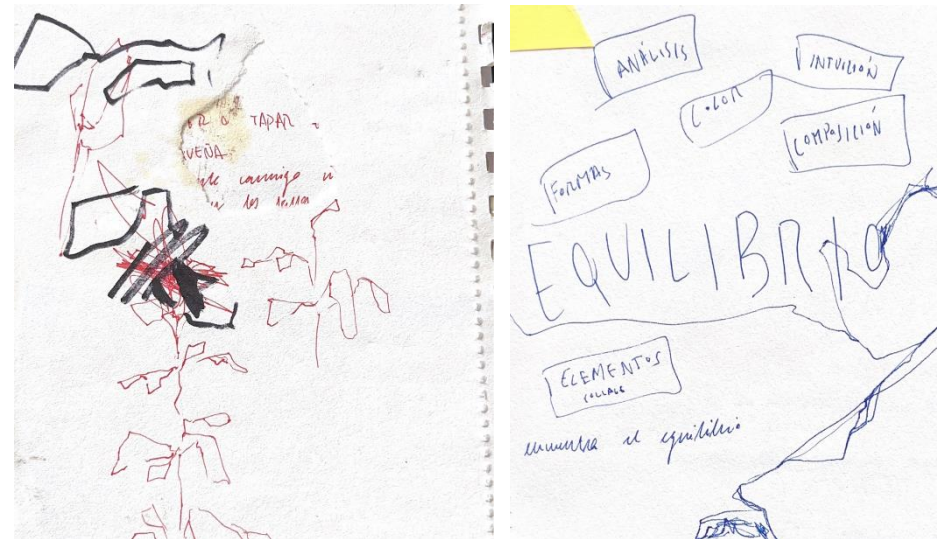 TAPAR
conmigo
ANÁLISIS
INTUICIÓN
COLOR
COMPOSICIÓN
FORMAS
EQUILIBRIO
ELEMENTOS
COLLAGE
encuentra el equilibrio